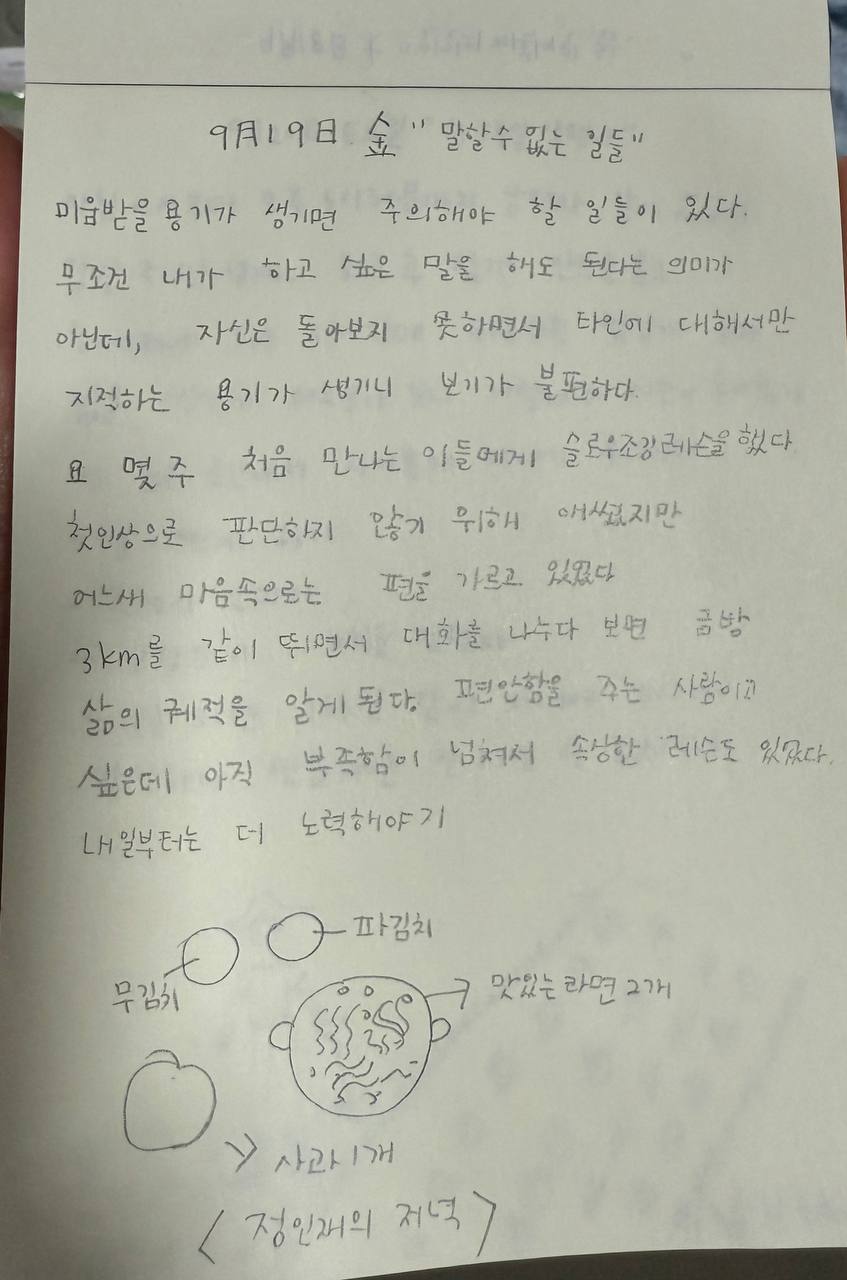 9月19日 金 "말할 수 없는 일들"
미움받을 용기가 생기면 주의해야 할 일들이 있다.
무조건 내가 하고 싶은 말을 해도 된다는 의미가
아닌데, 자신은 돌아보지 못하면서 타인에 대해서만
지적하는 용기가 생기니 보기가 불편하다.
요 몇 주 처음 만나는 이들에게 슬로우조깅레슨을 했다
첫인상으로 판단하지 않기 위해 애썼지만
어느새 마음속으로는 편을 가르고 있었다
3km를 같이 뛰면서 대화를 나누다 보면 금방
삶의 궤적을 알게 된다. 편안함을 주는 사람이고
싶은데 아직 부족함이 넘쳐서 속상한 레슨도 있었다.
내일부터는 더 노력해야기
파김치
무김치
맛있는 라면 2개
사과 1개
<정인재의 저녁>